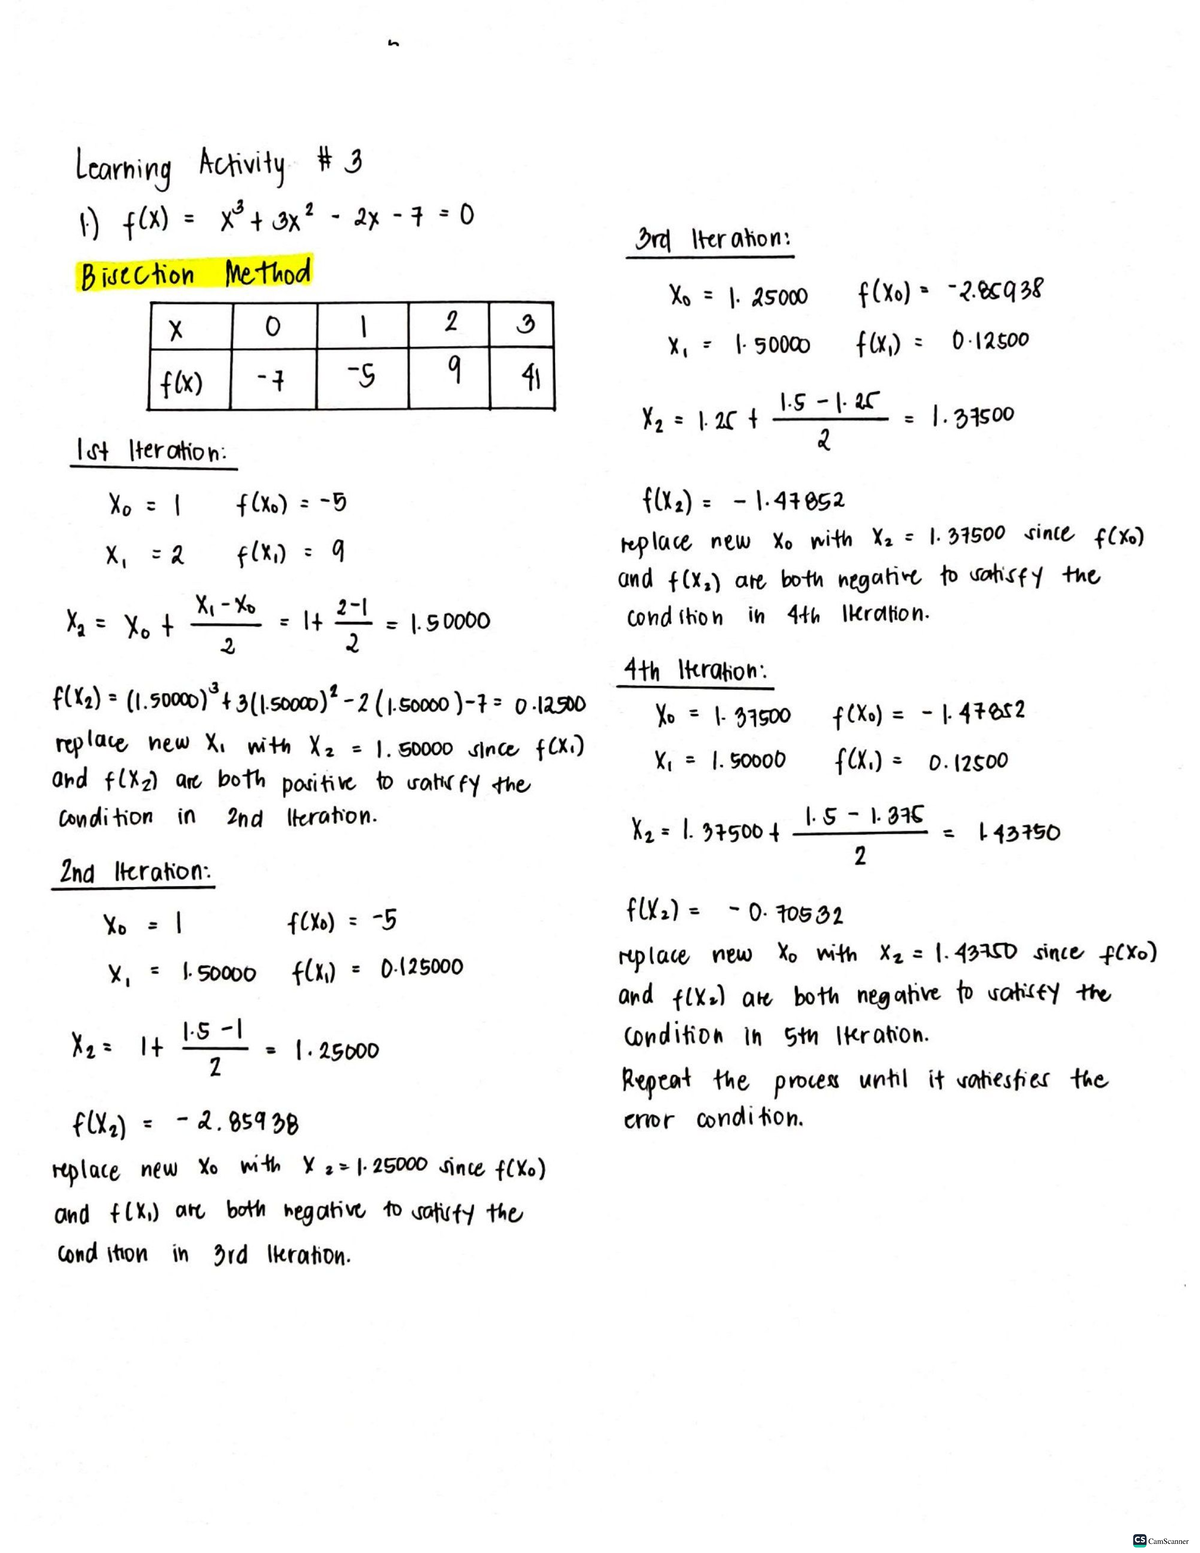 Learning Activity # 3
1.) f(x) = x³ + 3x² - 2x - 7 = 0
Bisection Method
x 0 1 2 3
f(x) -7 -5 9 41
1st Iteration:
X₀ = 1 f(X₀) = -5
X₁ = 2 f(X₁) = 9
X₂ = X₀ + (X₁ - X₀)/2 = 1 + (2-1)/2 = 1.50000
f(X₂) = (1.50000)³ + 3(1.50000)² - 2(1.50000) - 7 = 0.12500
replace new X₁ with X₂ = 1.50000 since f(X₁)
and f(X₂) are both positive to satisfy the
condition in 2nd Iteration.
2nd Iteration:
X₀ = 1 f(X₀) = -5
X₁ = 1.50000 f(X₁) = 0.125000
X₂ = 1 + (1.5 - 1)/2 = 1.25000
f(X₂) = -2.85938
replace new X₀ with X₂ = 1.25000 since f(X₀)
and f(X₁) are both negative to satisfy the
condition in 3rd Iteration.
3rd Iteration:
X₀ = 1.25000 f(X₀) = -2.85938
X₁ = 1.50000 f(X₁) = 0.12500
X₂ = 1.25 + (1.5 - 1.25)/2 = 1.37500
f(X₂) = -1.47852
replace new X₀ with X₂ = 1.37500 since f(X₀)
and f(X₂) are both negative to satisfy the
condition in 4th Iteration.
4th Iteration:
X₀ = 1.37500 f(X₀) = -1.47852
X₁ = 1.50000 f(X₁) = 0.12500
X₂ = 1.37500 + (1.5 - 1.375)/2 = 1.43750
f(X₂) = -0.70532
replace new X₀ with X₂ = 1.43750 since f(X₀)
and f(X₂) are both negative to satisfy the
condition in 5th Iteration.
Repeat the process until it satiesfies the
error condition.
CS CamScanner